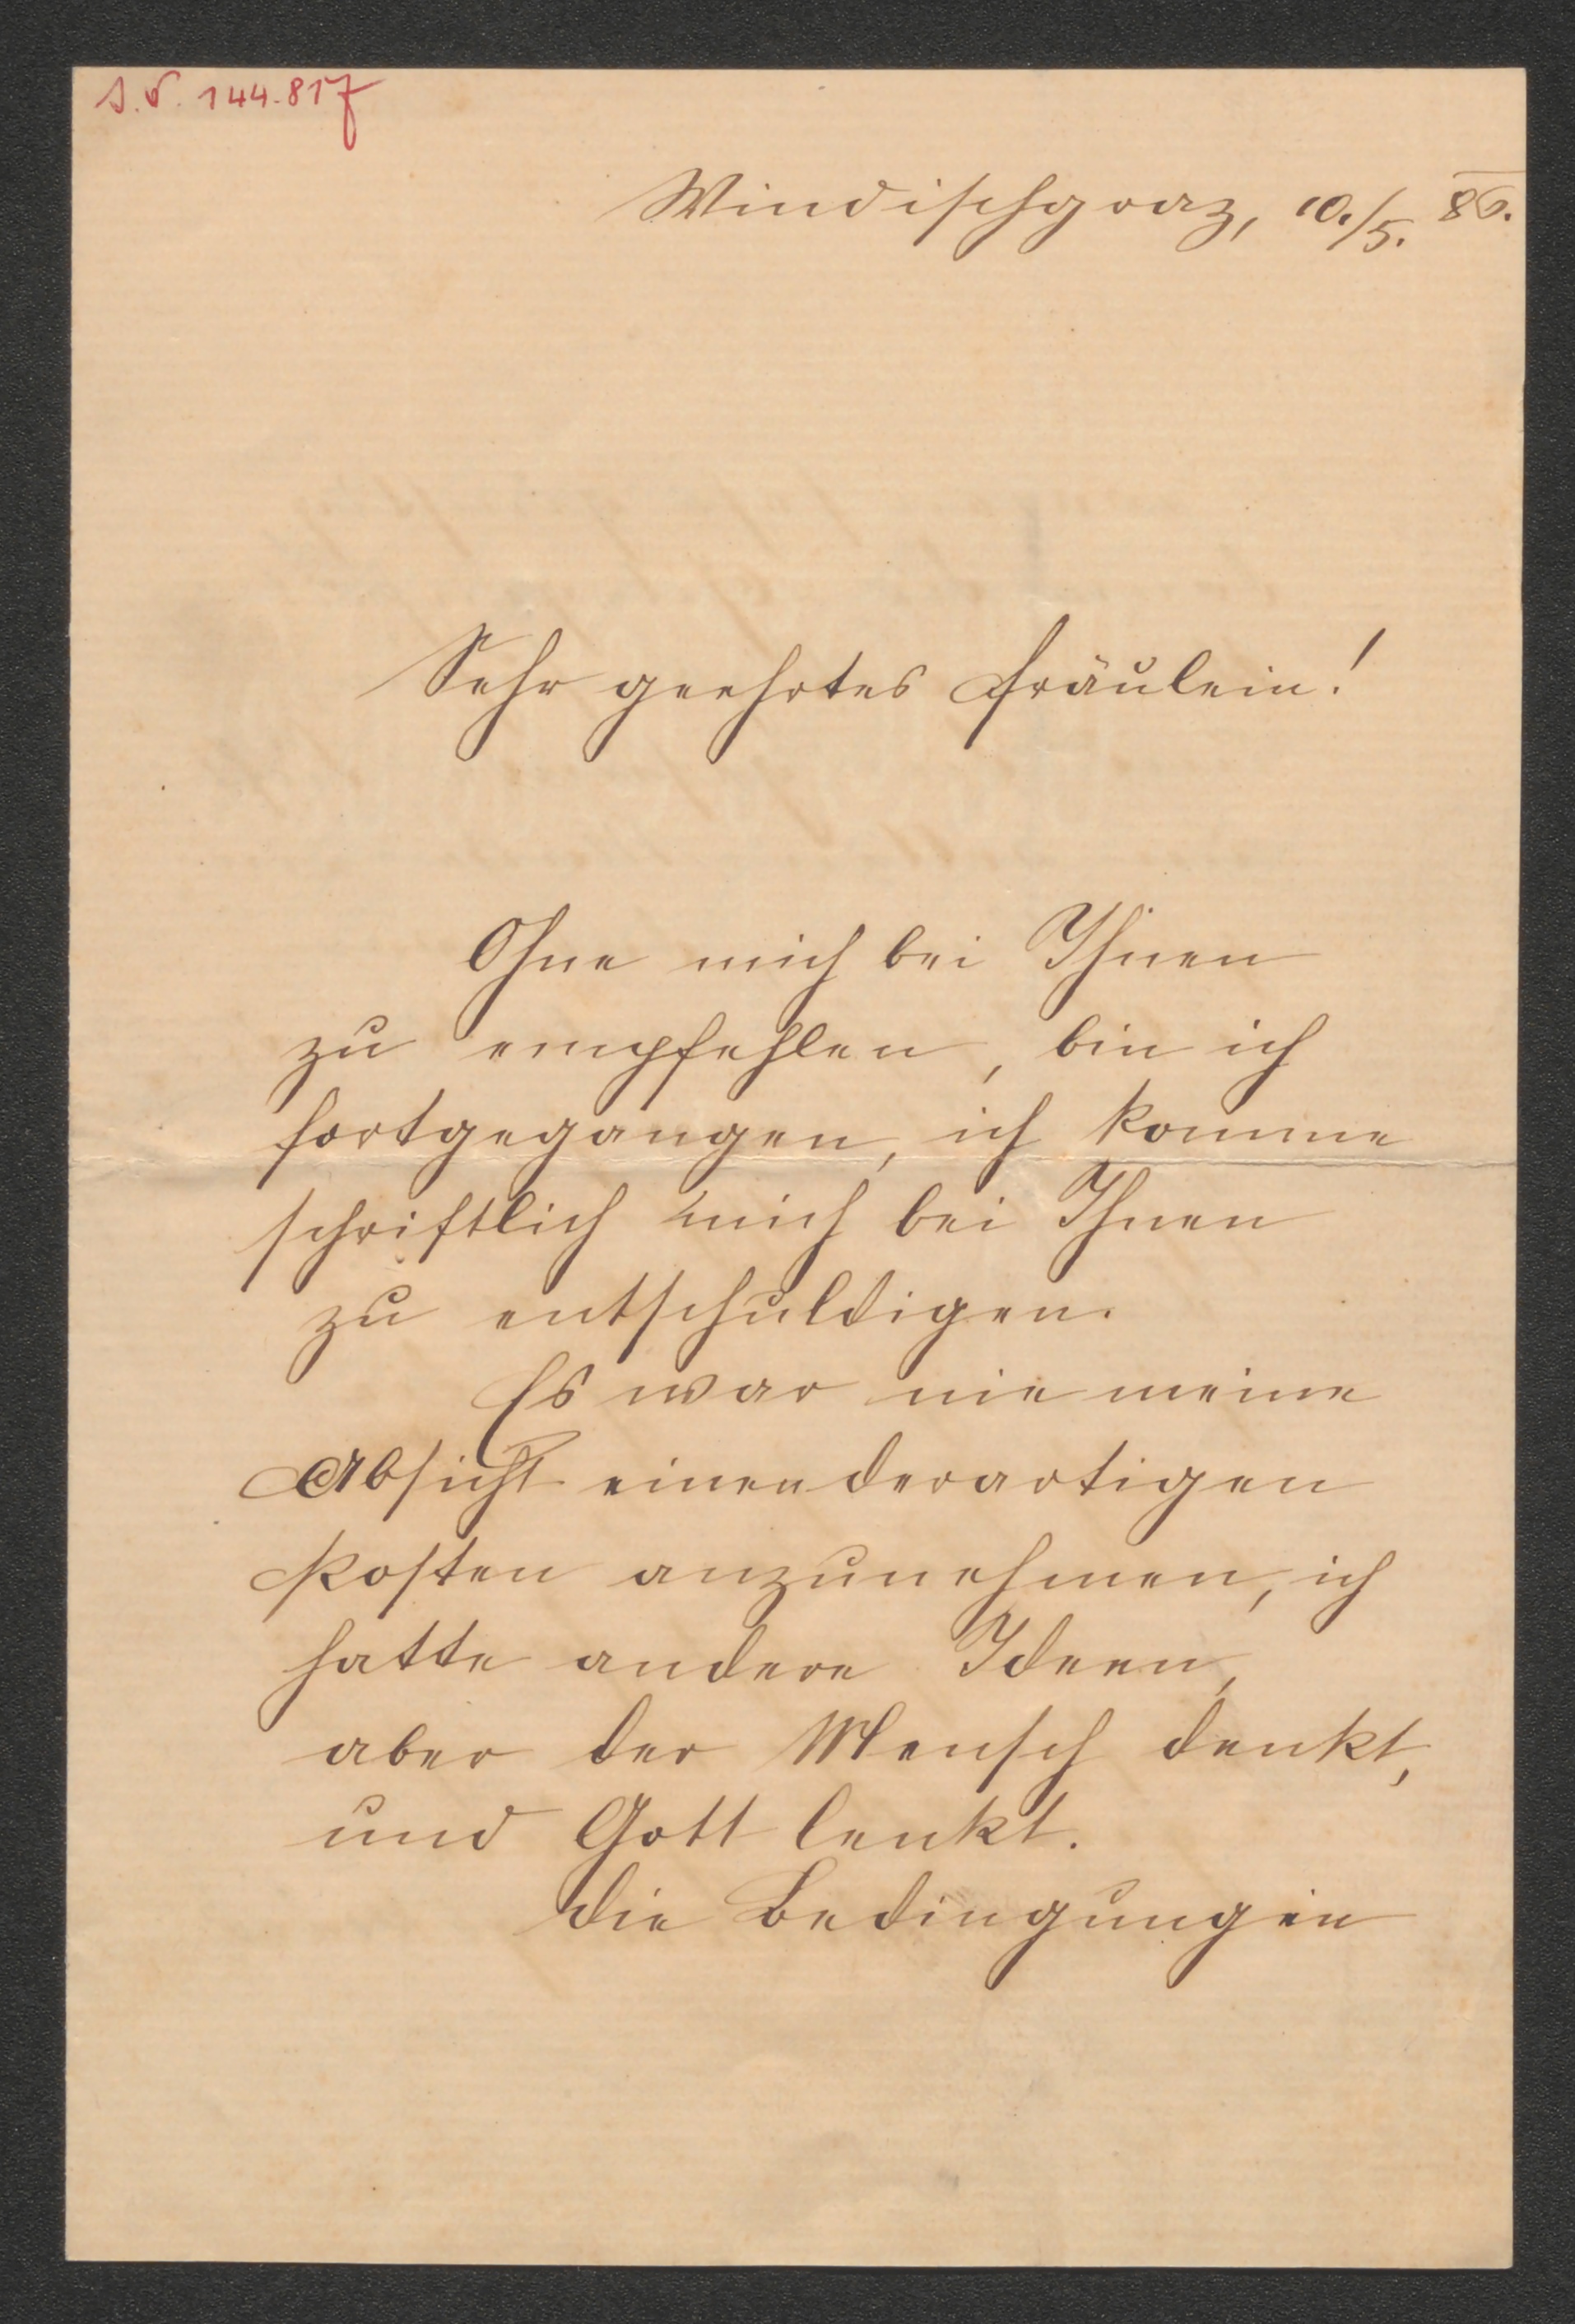 I.N. 144.817
Windischgraz, 10./5. 86.
Sehr geehrtes Fräulein!
Ohne mich bei Ihnen
zu empfehlen, bin ich
fortgegangen, ich komme
schriftlich mich bei Ihnen
zu entschuldigen.
Es war nie meine
Absicht einen derartigen
Kosten anzunehmen, ich
hatte andere Ideen,
aber der Mensch denkt,
und Gott lenkt.
Die Bedingungen